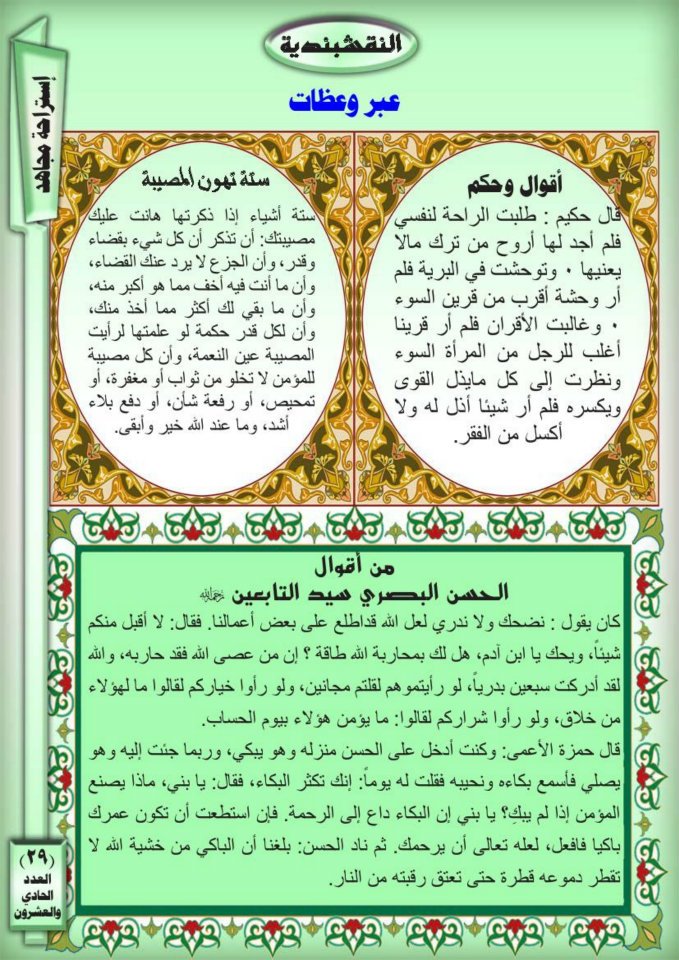 النقشبندية
إستراحة مجاهد
عبر وعظات
أقوال وحكم
قال حكيم : طلبت الراحة لنفسي
فلم أجد لها أروح من ترك مالا
يعنيها ٠ وتوحشت في البرية فلم
أر وحشة أقرب من قرين السوء
٠ وغالبت الأقران فلم أر قرينا
أغلب للرجل من المرأة السوء
ونظرت إلى كل مايذل القوى
ويكسره فلم أر شيئا أذل له ولا
أكسل من الفقر.
ستة تهون المصيبة
ستة أشياء إذا ذكرتها هانت عليك
مصيبتك: أن تذكر أن كل شيء بقضاء
وقدر، وأن الجزع لا يرد عنك القضاء،
وأن ما أنت فيه أخف مما هو أكبر منه،
وأن ما بقي لك أكثر مما أخذ منك،
وأن لكل قدر حكمة لو علمتها لرأيت
المصيبة عين النعمة، وأن كل مصيبة
للمؤمن لا تخلو من ثواب أو مغفرة، أو
تمحيص، أو رفعة شأن، أو دفع بلاء
أشد، وما عند الله خير وأبقى.
من أقوال
الحسن البصري سيد التابعين رحمه الله
كان يقول : نضحك ولا ندري لعل الله قداطلع على بعض أعمالنا. فقال: لا أقبل منكم
شيئاً، ويحك يا ابن آدم، هل لك بمحاربة الله طاقة ؟ إن من عصى الله فقد حاربه، والله
لقد أدركت سبعين بدرياً، لو رأيتموهم لقلتم مجانين، ولو رأوا خياركم لقالوا ما لهؤلاء
من خلاق، ولو رأوا شراركم لقالوا: ما يؤمن هؤلاء بيوم الحساب.
قال حمزة الأعمى: وكنت أدخل على الحسن منزله وهو يبكي، وربما جئت إليه وهو
يصلي فأسمع بكاءه ونحيبه فقلت له يوماً: إنك تكثر البكاء، فقال: يا بني، ماذا يصنع
المؤمن إذا لم يبكِ؟ يا بني إن البكاء داع إلى الرحمة. فإن استطعت أن تكون عمرك
باكيا فافعل، لعله تعالى أن يرحمك. ثم ناد الحسن: بلغنا أن الباكي من خشية الله لا
تقطر دموعه قطرة حتى تعتق رقبته من النار.
(٢٩)
العدد
الحادي
والعشرون